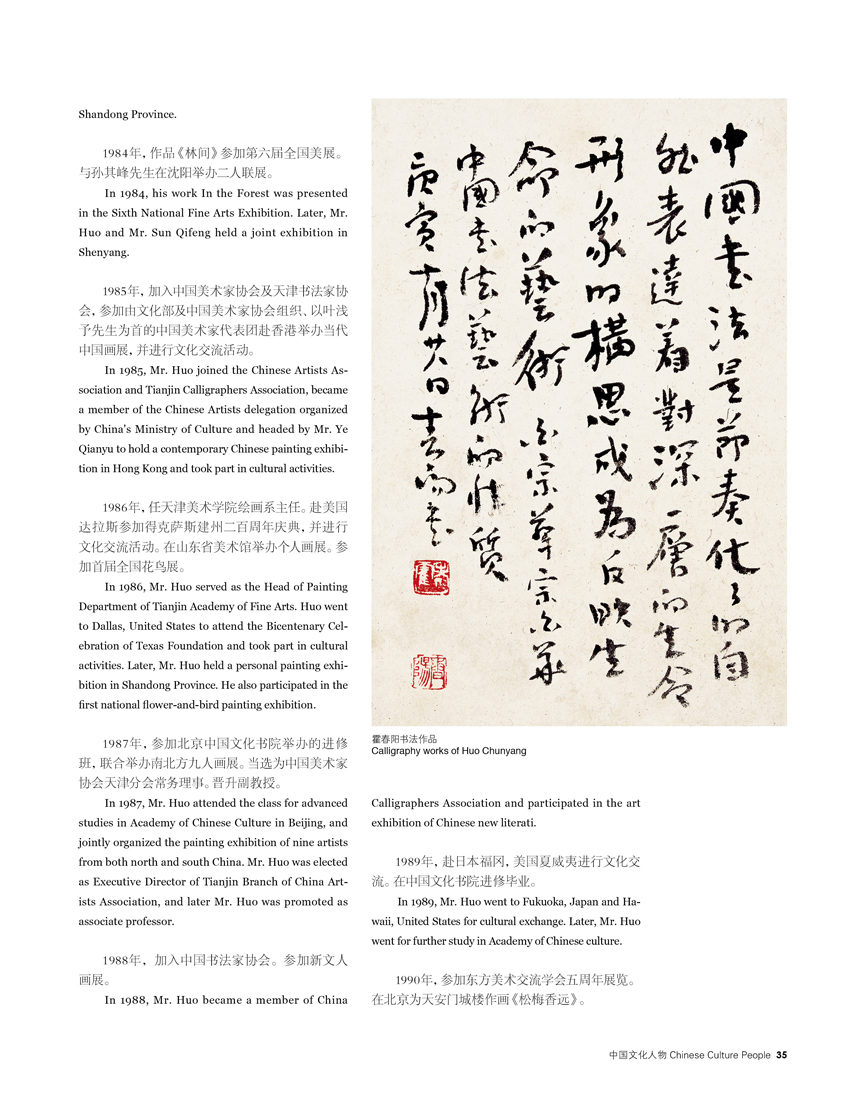 Shandong Province.
1984年，作品《林间》参加第六届全国美展。
与孙其峰先生在沈阳举办二人联展。
In 1984, his work In the Forest was presented
in the Sixth National Fine Arts Exhibition. Later, Mr.
Huo and Mr. Sun Qifeng held a joint exhibition in
Shenyang.
1985年，加入中国美术家协会及天津书法家协
会，参加由文化部及中国美术家协会组织、以叶浅
予先生为首的中国美术家代表团赴香港举办当代
中国画展，并进行文化交流活动。
In 1985, Mr. Huo joined the Chinese Artists As-
sociation and Tianjin Calligraphers Association, became
a member of the Chinese Artists delegation organized
by China's Ministry of Culture and headed by Mr. Ye
Qianyu to hold a contemporary Chinese painting exhibi-
tion in Hong Kong and took part in cultural activities.
1986年，任天津美术学院绘画系主任。赴美国
达拉斯参加得克萨斯建州二百周年庆典，并进行
文化交流活动。在山东省美术馆举办个人画展。参
加首届全国花鸟展。
In 1986, Mr. Huo served as the Head of Painting
Department of Tianjin Academy of Fine Arts. Huo went
to Dallas, United States to attend the Bicentenary Cel-
ebration of Texas Foundation and took part in cultural
activities. Later, Mr. Huo held a personal painting exhi-
bition in Shandong Province. He also participated in the
first national flower-and-bird painting exhibition.
1987年，参加北京中国文化书院举办的进修
班，联合举办南北方九人画展。当选为中国美术家
协会天津分会常务理事。晋升副教授。
In 1987, Mr. Huo attended the class for advanced
studies in Academy of Chinese Culture in Beijing, and
jointly organized the painting exhibition of nine artists
from both north and south China. Mr. Huo was elected
as Executive Director of Tianjin Branch of China Art-
ists Association, and later Mr. Huo was promoted as
associate professor.
1988年，加入中国书法家协会。参加新文人
画展。
In 1988, Mr. Huo became a member of China
中國書法是节奏化了的自
然表達着對深一層的生命
形象的構思成為反映生
命的藝術
中國书法藝術的性質
庚寅十月廿日春陽書
霍春阳书法作品
Calligraphy works of Huo Chunyang
Calligraphers Association and participated in the art
exhibition of Chinese new literati.
1989年，赴日本福冈，美国夏威夷进行文化交
流。在中国文化书院进修毕业。
In 1989, Mr. Huo went to Fukuoka, Japan and Ha-
waii, United States for cultural exchange. Later, Mr. Huo
went for further study in Academy of Chinese culture.
1990年，参加东方美术交流学会五周年展览。
在北京为天安门城楼作画《松梅香远》。
中国文化人物 Chinese Culture People 35